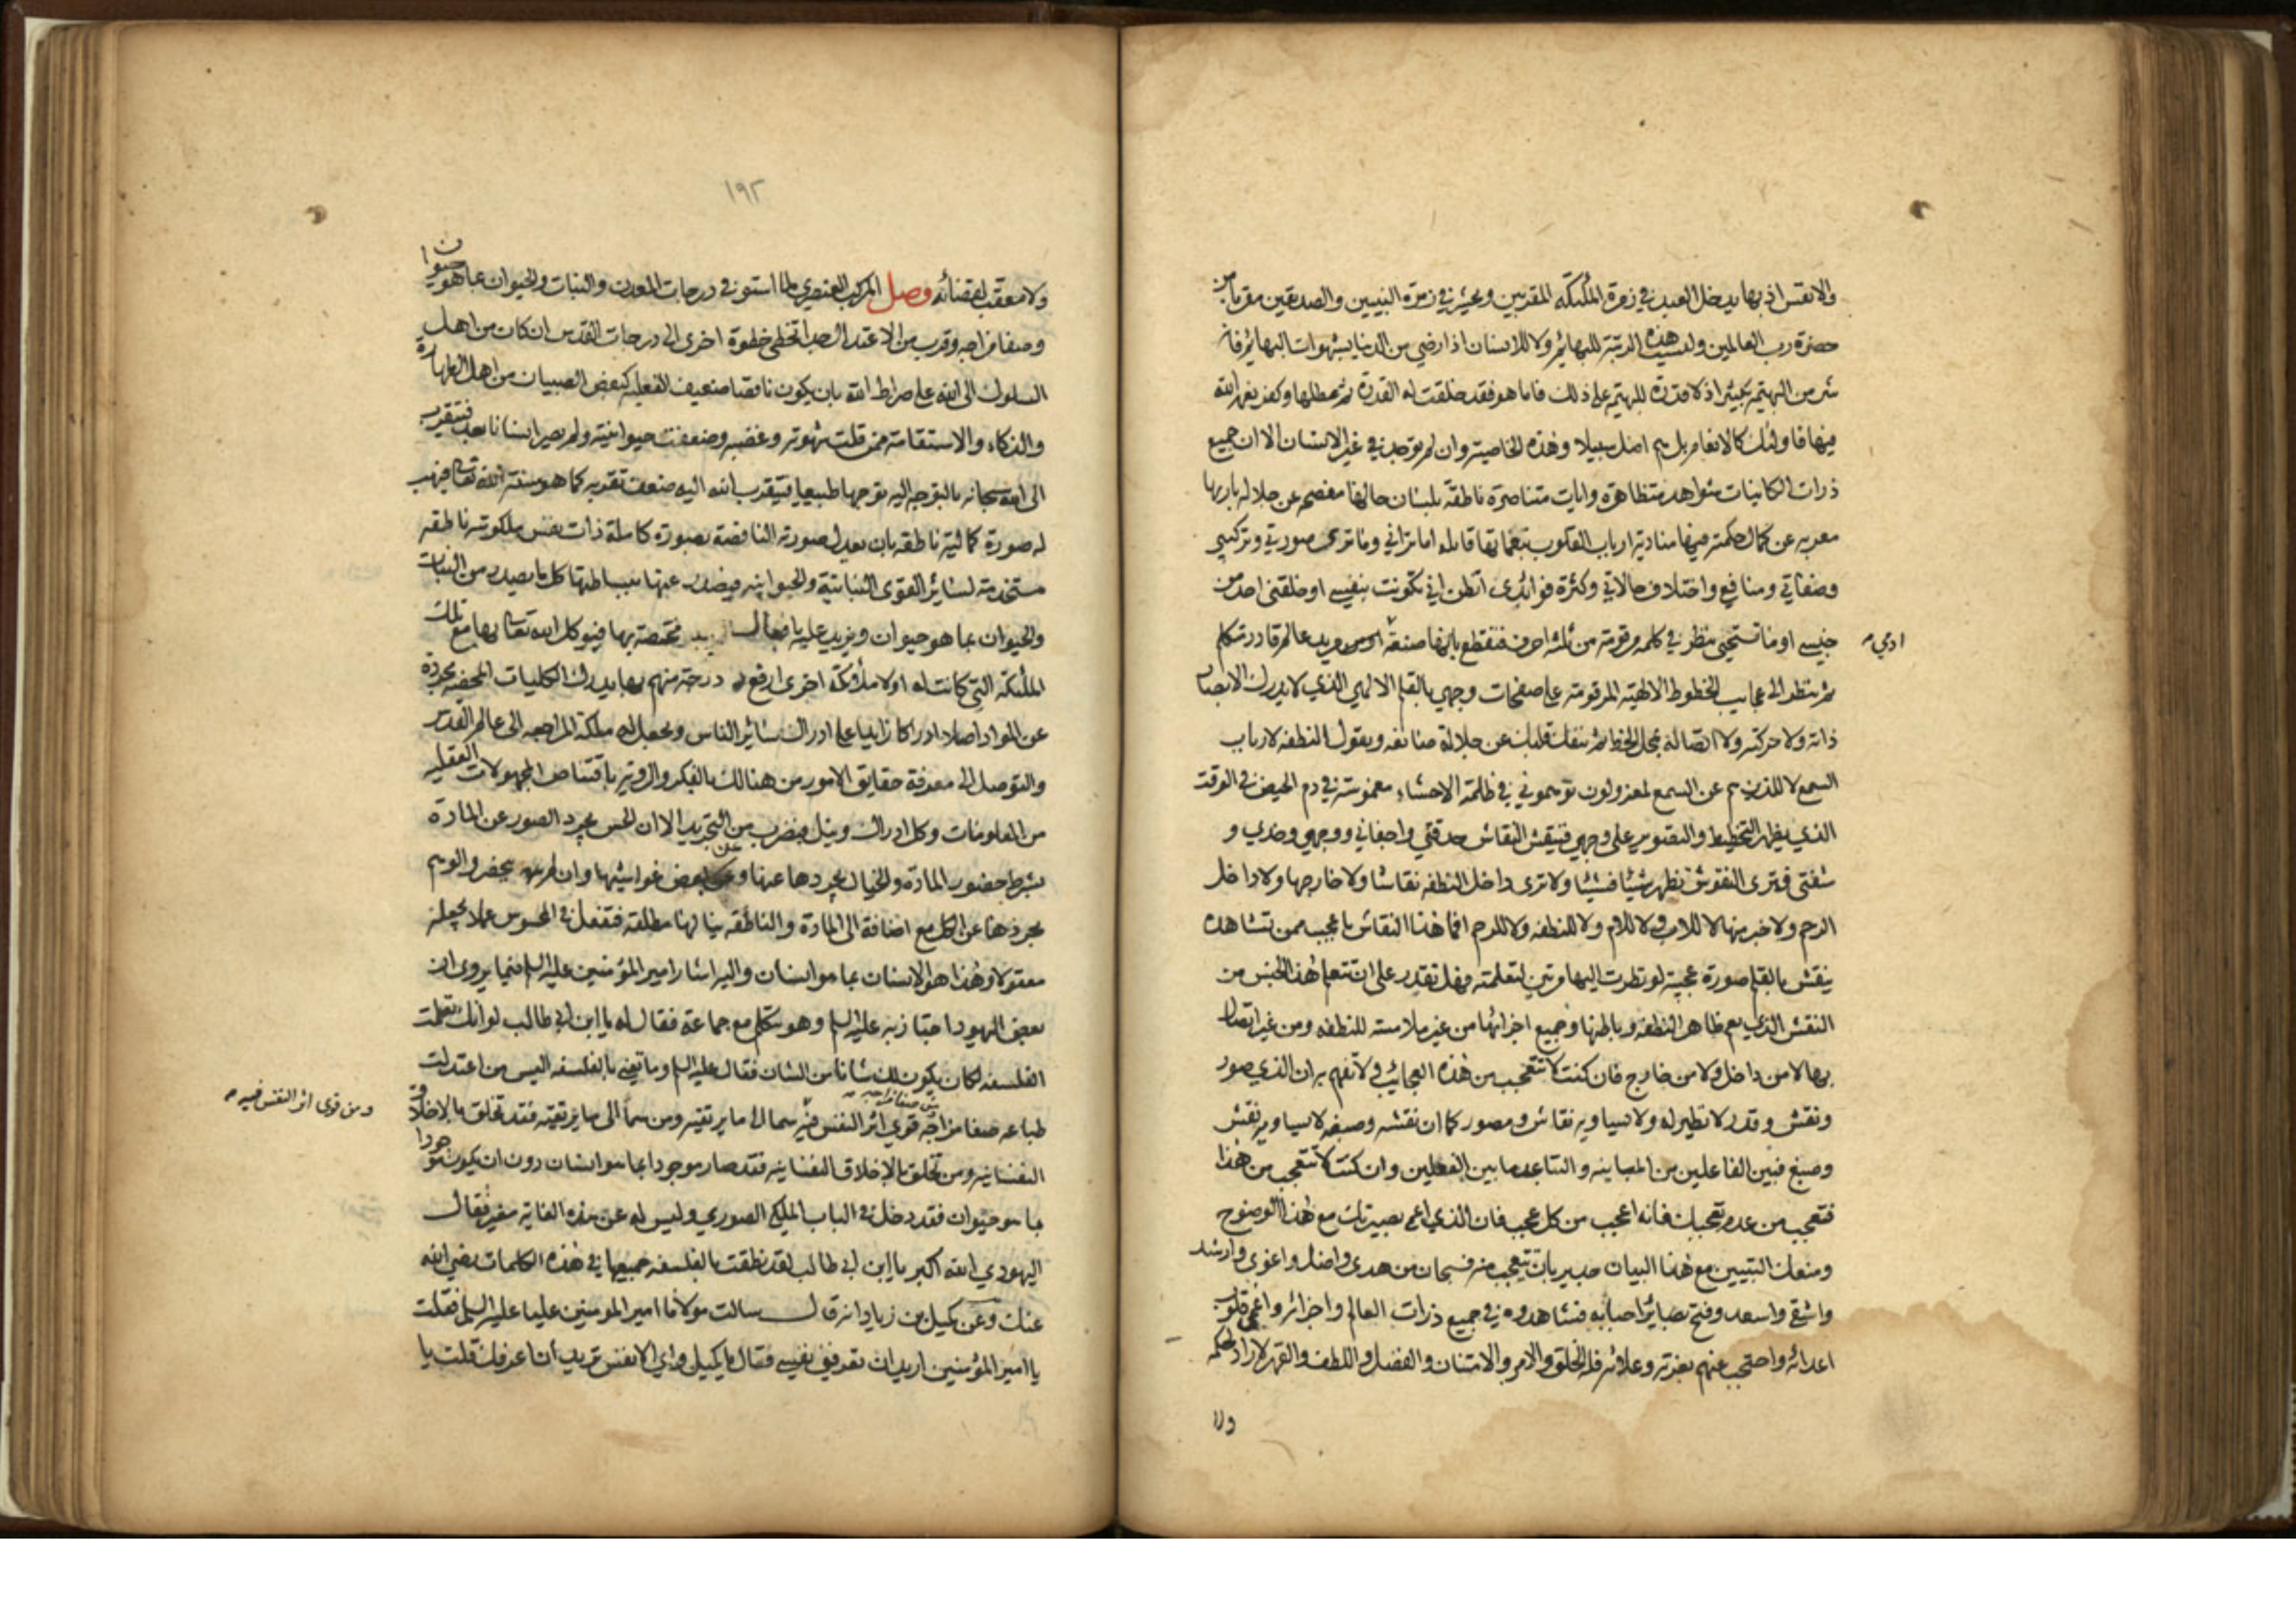 والانفس اذ بها يدخل العبد في زمرة الملئكة المقربين ويحشر في زمرة النبيين والصديقين مقربا من
حضرة رب العالمين وليست هذه الرتبة للبهائم ولا للانسان اذا رضي من الدنيا بشهوات البهائم فانه
شر من البهيمة بكثير اذ لا قدرة للبهيمة على ذلك فاما هو فقد خلقت له القدرة ثم عطلها وكفر نعم الله
فيها فاولئك كالانعام بل هم اضل سبيلا وهذه الخاصية وان لم توجد في غير الانسان الا ان جميع
ذرات الكاينات شواهد متظاهرة وايات متناصرة ناطقة بلسان حالها مفصحه عن جلاله باريها
معربه عن كمال حكمته فيها منادية ارباب القلوب بنغماتها قايله اما تراني وما ترى صورتي وتركيبي
وصفاتي ومنافعي واختلاف حالاتي وكثرة فوائدي اتظن اني تكونت بنفسي او خلقني احد من
جنسي او ما تستحيي تنظر في كلمه مرقومة من ثلثه احرف فتقطع بانها صنعة آدمي مريد عالم قادر متكلم
ادمي
ثم تنظر الى عجايب الخطوط الالهية المرقومة على صفحات وجهي بالقلم الالهي الذي لا يدرك الابصار
ذاته ولا حركته ولا اتصاله بمحل الخط ثم ينفك قلبك عن جلالة صانعه ويقول النطفه لارباب
السمع لا للذين هم عن السمع لمعزولون توهموني في ظلمة الاحشاء مغموسة في دم الحيض في الوقت
الذي يظهر التخطيط والتصوير على وجهي فينقش النقاش حدقتي واجفاني ووجهي وخدي و
شفتي فترى النقوش تظهر شيئا فشيئا ولا ترى داخل النطفه نقاشا ولا خارجها ولا داخل
الرحم ولا خبر منها لا للاب ولا للام ولا للنطفه ولا للرحم افما هذا النقاش باعجب ممن تشاهده
ينقش بالقلم صورة عجيبة لو نظرت اليها مرتين لتعلمته فهل تقدر على ان تتعلم هذا الجنس من
النقش الذي يعم ظاهر النطفه وباطنها وجميع اجزائها من غير ملامسه للنطفه ومن غير اتصال
بها لا من داخل ولا من خارج فان كنت لا تتعجب من هذه العجائب ولا تفهم به ان الذي صور
ونقش وقدر لا نظير له ولا يساويه نقاش ومصور كما ان نقشه وصنعه لا يساويه نقش
وصنع فبين الفاعلين من المباينه والتباعد ما بين الفعلين وان كنت لا تتعجب من هذا
فتعجب من عدم تعجبك فانه اعجب من كل عجب فان الذي اعمى بصيرتك مع هذا الوضوح
ومنعك التبيين مع هذا البيان جدير بان يتعجب منه فسبحان من هدى واضل واغوى وارشد
واشقى واسعد وفتح بصائر احبابه فشاهدوه في جميع ذرات العالم واجزائه واعمى قلوب
اعدائه واحتجب عنهم بعزته وعلائه فله الخلق والامر والامتنان والفضل واللطف والقهر لا راد لحكمه
ولا
١٩٢
ولا معقب لقضائه وصل المركب العنصري لما استوفى درجات المعدن والنبات والحيوان بما هو حيوان
وصفا مزاجه وقرب من الاعتدال جدا تخطى خطوة اخرى الى درجات القدس ان كان من اهل
السلوك الى الله على صراط الله بان يكون ناقصا ضعيف الفعليه كبعض الصبيان من اهل الطهارة
والذكاء والاستقامة ممن قلت شهوته وغضبه وضعفت حيوانيته ولم يصر انسانا بعد فتقرب
الى الله سبحانه بالتوجه اليه توجها طبيعيا فيتقرب الله اليه ضعف تقربه كما هو سنة الله تعالى فيهب
له صورة كمالية ناطقه بان يبدل صورته الناقصة بصورة كاملة ذات نفس ملكوتيه ناطقه
مستخدمة لسائر القوى النباتية والحيوانيه فيصدر عنها ببساطتها كل ما يصدر من النبات
والحيوان بما هو حيوان ويزيد عليه بافعال مختصة بها فيوكل الله تعالى بها مع تلك
الملئكة التي كانت له اولا ملائكة اخرى ارفع درجة منهم بها يدرك الكليات المحضه مجردة
عن المواد اصلا ادراكا زايدا على ادراك سائر الناس ويجعل له ملكة المراجعه الى عالم القدس
والتوصل الى معرفة حقايق الامور من هنالك بالفكر والرويه باقتناص المجهولات العقليه
من المعلومات وكل ادراك ونيل فبضرب من التجريد الا ان الحس يجرد الصور عن المادة
بشرط حضور المادة والخيال يجردها عنها وعن بعض غواشيها وان لم يحضر والوهم
يجردها عن الكل مع اضافة الى المادة والناطقه ينالها مطلقه فتفعل في المحسوس عملا يجعله
معقولا وهذا هو الانسان بما هو انسان واليه اشار امير المؤمنين عليه السلم فيما يروى ان
بعض اليهود اجتاز به عليه السلم وهو يتكلم مع جماعة فقال له يا ابن ابي طالب لو انك تعلمت
الفلسفه لكان يكون لك شانا من الشان فقال عليه السلم وما تعني بالفلسفه اليس من اعتدلت
طباعه صفا مزاجه قوي اثر النفس فيه سما الى ما يرتقيه ومن سما الى ما يرتقيه فقد تخلق بالاخلاق
ومن صفا مزاجه
ومن قوى اثر النفس فيه
النفسانيه ومن تخلق بالاخلاق النفسانيه فقد صار موجودا بما هو انسان دون ان يكون موجودا
بما هو حيوان فقد دخل في الباب الملكي الصوري وليس له عن هذه الغاية مغير فقال
اليهودي الله اكبر يا ابن ابي طالب لقد نطقت بالفلسفه جميعها في هذه الكلمات رضي الله
عنك وعن كميل بن زياد انه قال سالت مولانا امير المومنين عليا عليه السلم فقلت
يا امير المؤمنين اريد ان تعرفني نفسي فقال يا كميل واي الانفس تريد ان اعرفك قلت يا